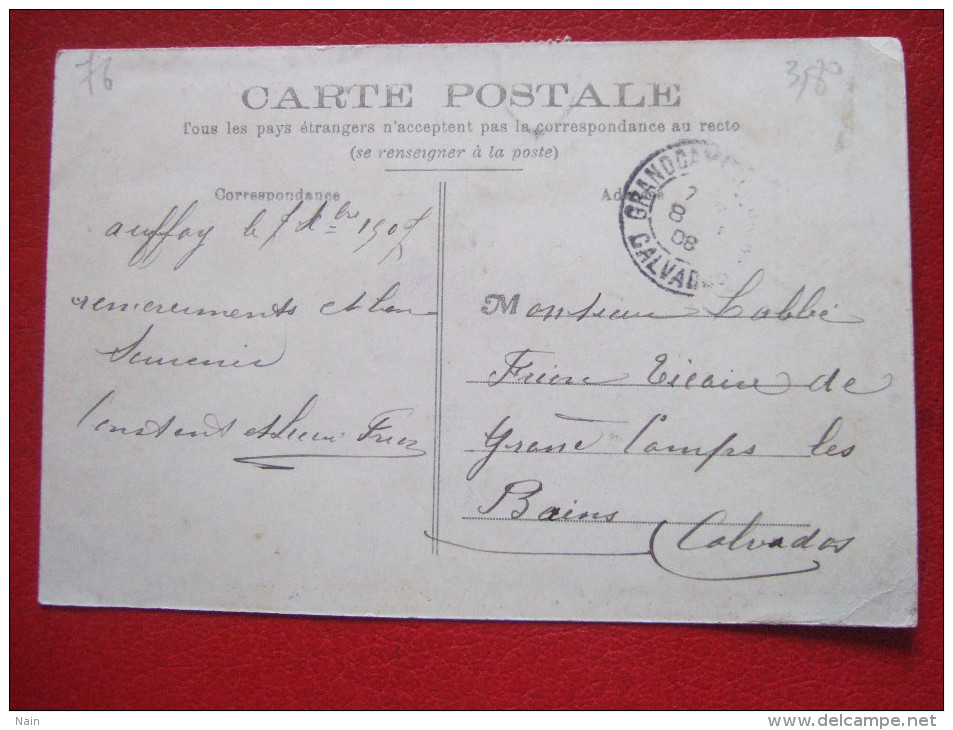 76
3580
CARTE POSTALE
Tous les pays étrangers n'acceptent pas la correspondance au recto
(se renseigner à la poste)
Correspondance
Adresse
GRANDCAM
7
8
08
CALVADOS
auffay le 7 Xbre 1907
remerciments et bon
Souvenir
Constant et Frion
Monsieur Labbé
Frion Vicaire de
Grand Camps les
Bains
Calvados
Nain
www.delcampe.net